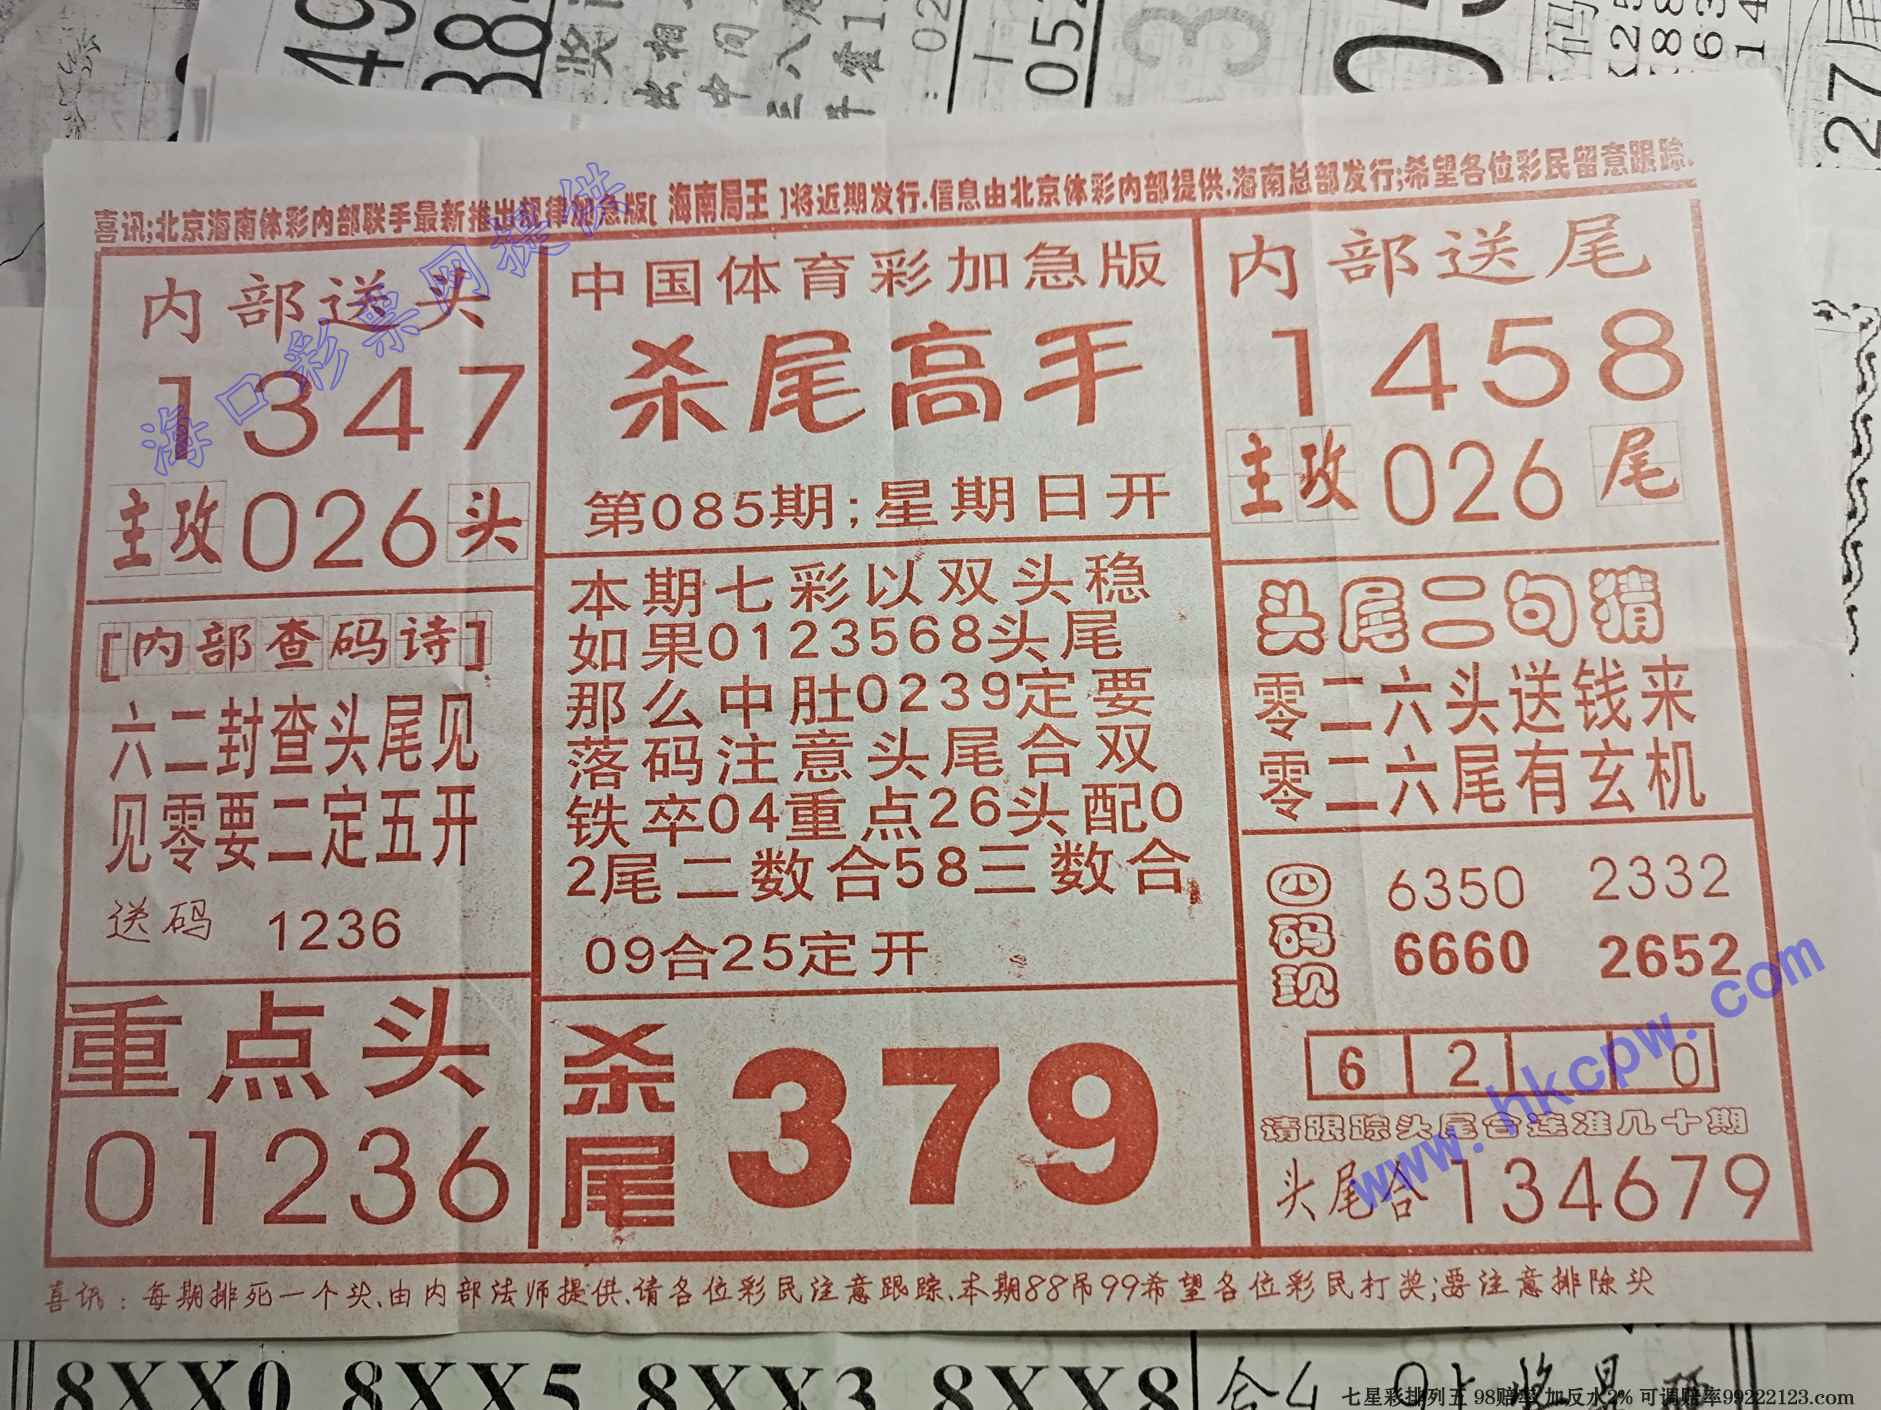 喜讯;北京海南体彩内部联手最新推出规律加急版[ 海南局王 ]将近期发行.信息由北京体彩内部提供.海南总部发行;希望各位彩民留意跟踪.
内部送头
1347
主攻026头
[内部查码诗]
六二封查头尾见
见零要二定五开
送码 1236
重点头
01236
中国体育彩加急版
杀尾高手
第085期;星期日开
本期七彩以双头稳
如果0123568头尾
那么中肚0239定要
落码注意头尾合双
铁卒04重点26头配0
2尾二数合58三数合
09合25定开
杀尾
379
内部送尾
1458
主攻026尾
头尾二句猜
零二六头送钱来
零二六尾有玄机
四码现
6350 2332
6660 2652
6 2 0
请跟踪头尾合连准几十期
头尾合134679
喜讯:每期排死一个头.由内部法师提供.请各位彩民注意跟踪.本期88吊99希望各位彩民打奖;要注意排除头
海口彩票网提供
www.hkcpw.com
8XX0 8XX5 8XX3 8XX8
七星彩排列五 98赔率 加反水2% 可调赔率99222123.com